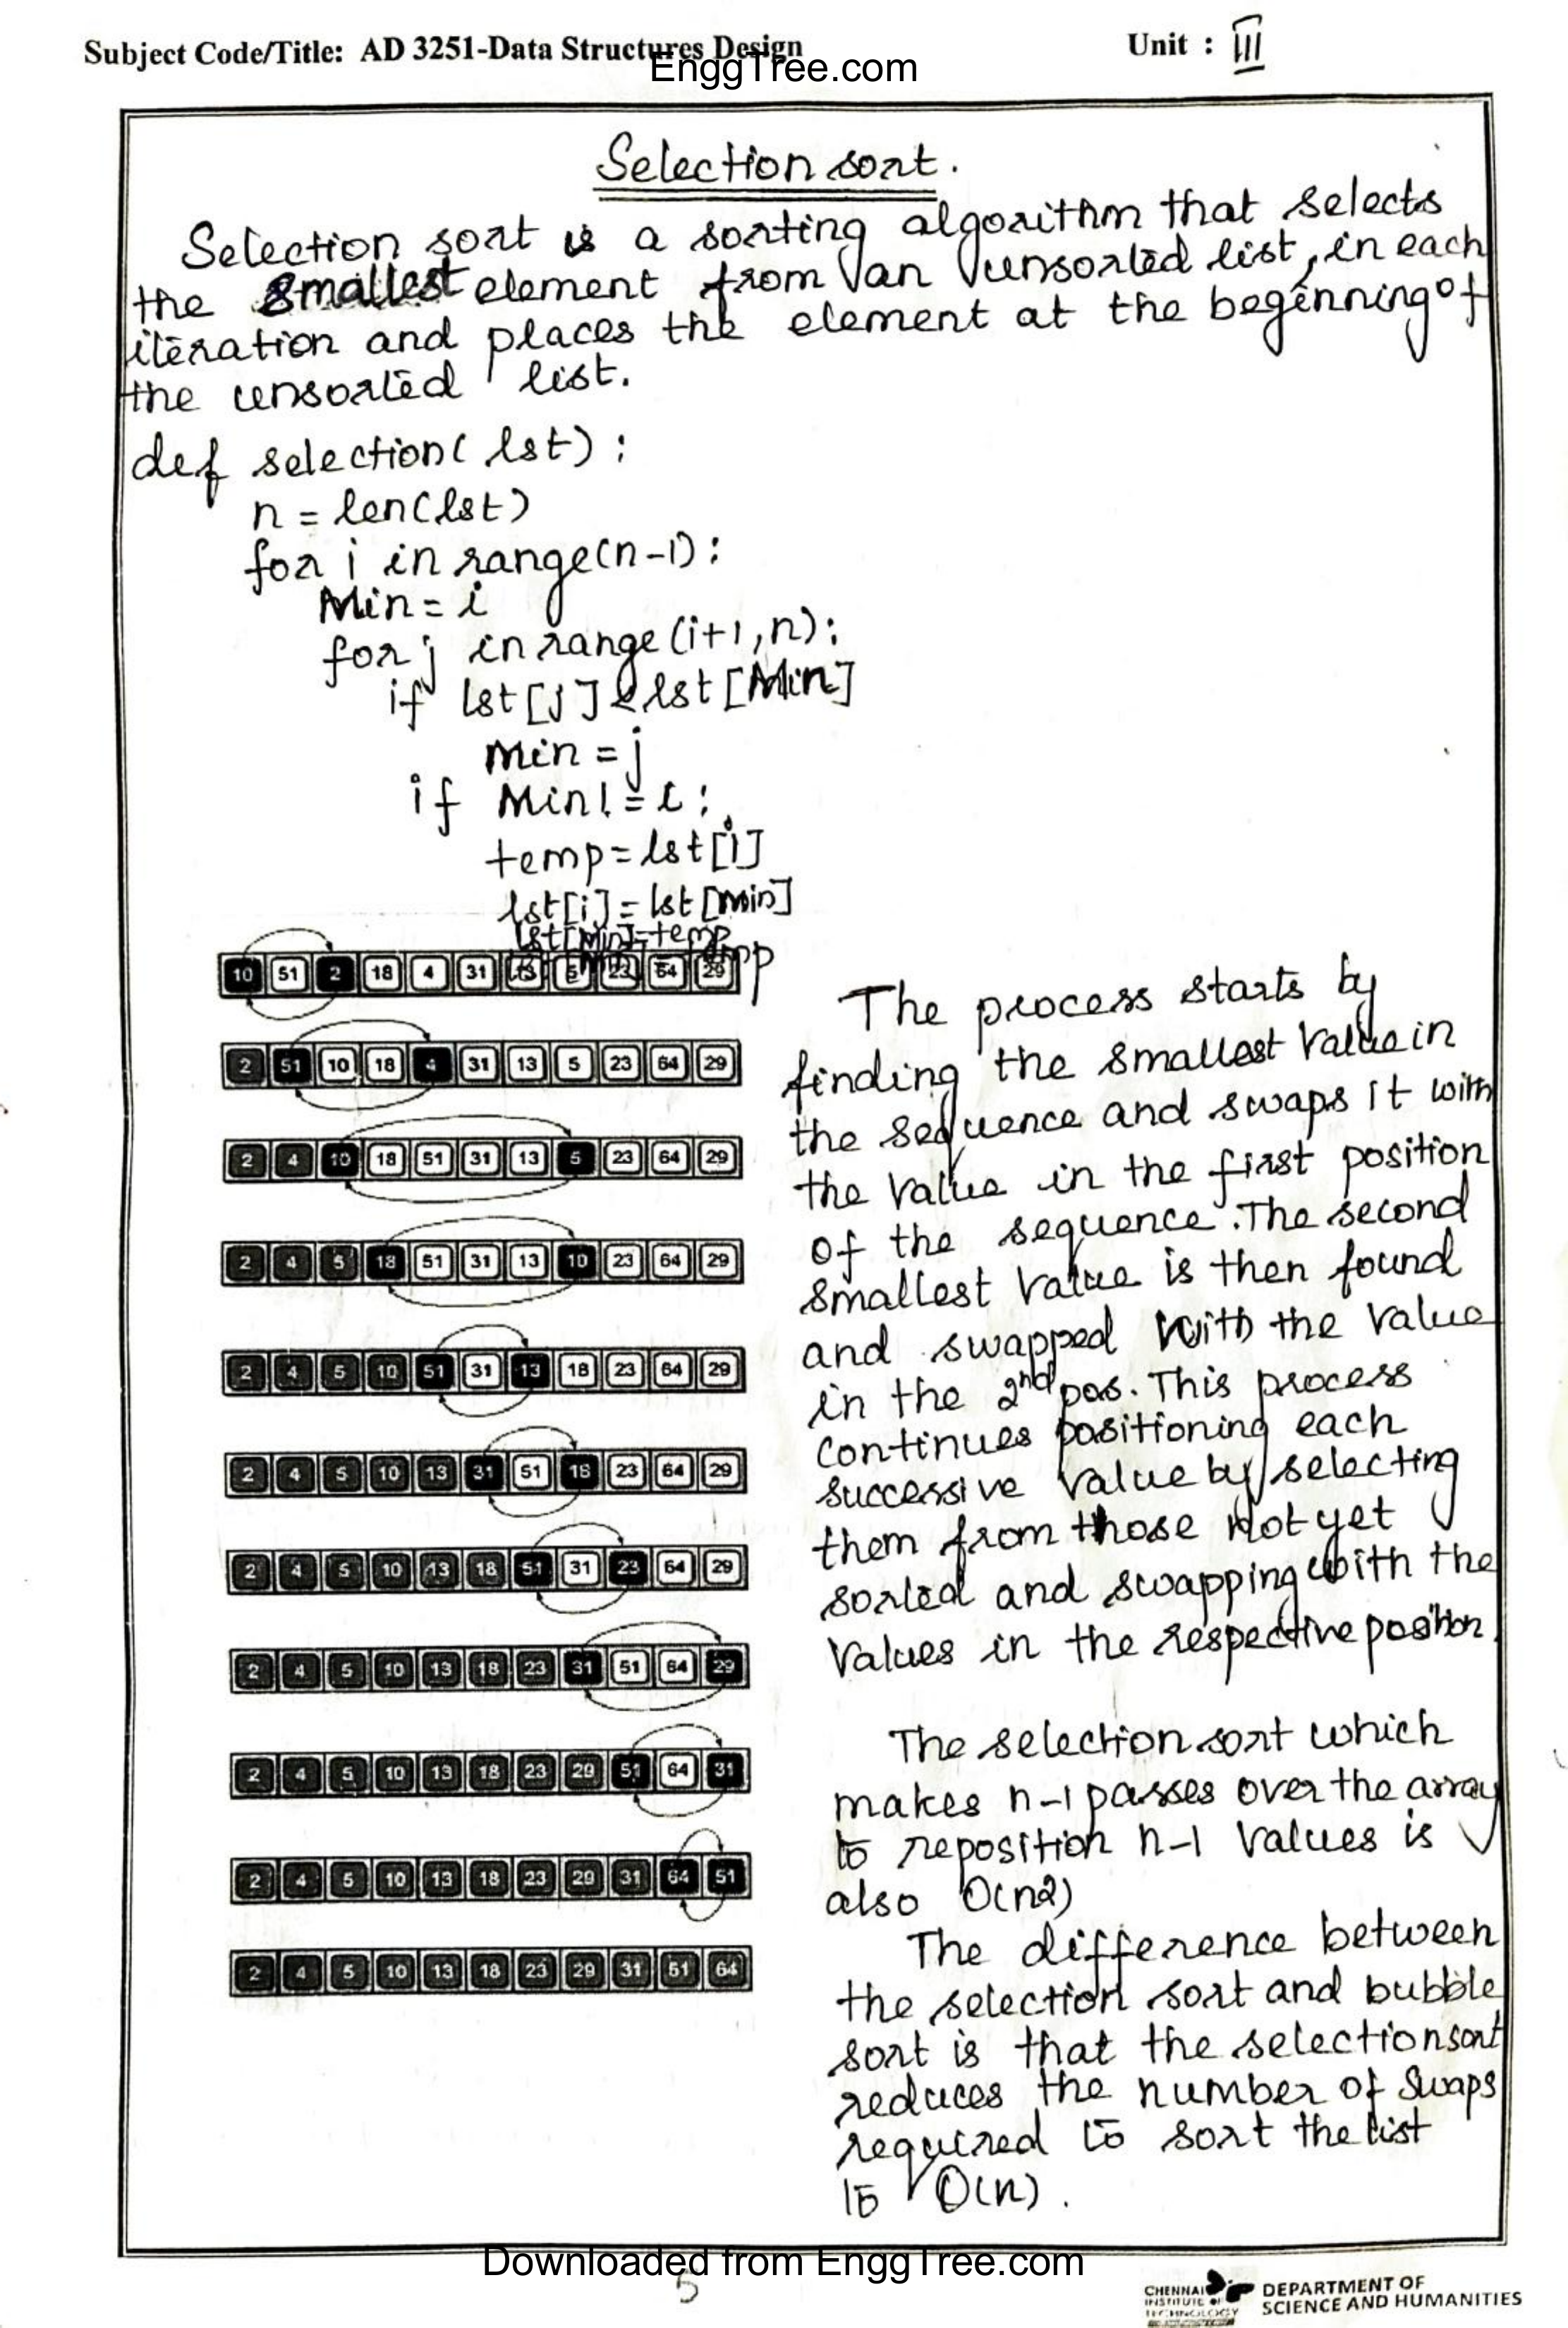 Subject Code/Title: AD 3251-Data Structures Design
Unit : III
EnggTree.com
Selection sort.
Selection sort is a sorting algorithm that selects
the smallest element from an unsorted list, in each
iteration and places the element at the beginning of
the unsorted list.
def selection( lst) :
n = len(lst)
for i in range(n-1):
Min = i
for j in range(i+1,n):
if lst[j] < lst[Min]
Min = j
if Min! = i:
temp = lst[i]
lst[i] = lst[Min]
lst[Min] = temp
10 51 2 18 4 31 13 5 23 64 29
2 51 10 18 4 31 13 5 23 64 29
2 4 10 18 51 31 13 5 23 64 29
2 4 5 18 51 31 13 10 23 64 29
2 4 5 10 51 31 13 18 23 64 29
2 4 5 10 13 31 51 18 23 64 29
2 4 5 10 13 18 51 31 23 64 29
2 4 5 10 13 18 23 31 51 64 29
2 4 5 10 13 18 23 29 51 64 31
2 4 5 10 13 18 23 29 31 64 51
2 4 5 10 13 18 23 29 31 51 64
The process starts by
finding the smallest value in
the sequence and swaps it with
the value in the first position
of the sequence. The second
smallest value is then found
and swapped with the value
in the 2nd pos. This process
continues positioning each
successive value by selecting
them from those not yet
sorted and swapping with the
values in the respective position.
The selection sort which
makes n-1 passes over the array
to reposition n-1 values is
also O(n2)
The difference between
the selection sort and bubble
sort is that the selection sort
reduces the number of swaps
required to sort the list
to O(n).
Downloaded from EnggTree.com
5
CHENNAI
INSTITUTE OF
TECHNOLOGY
DEPARTMENT OF
SCIENCE AND HUMANITIES